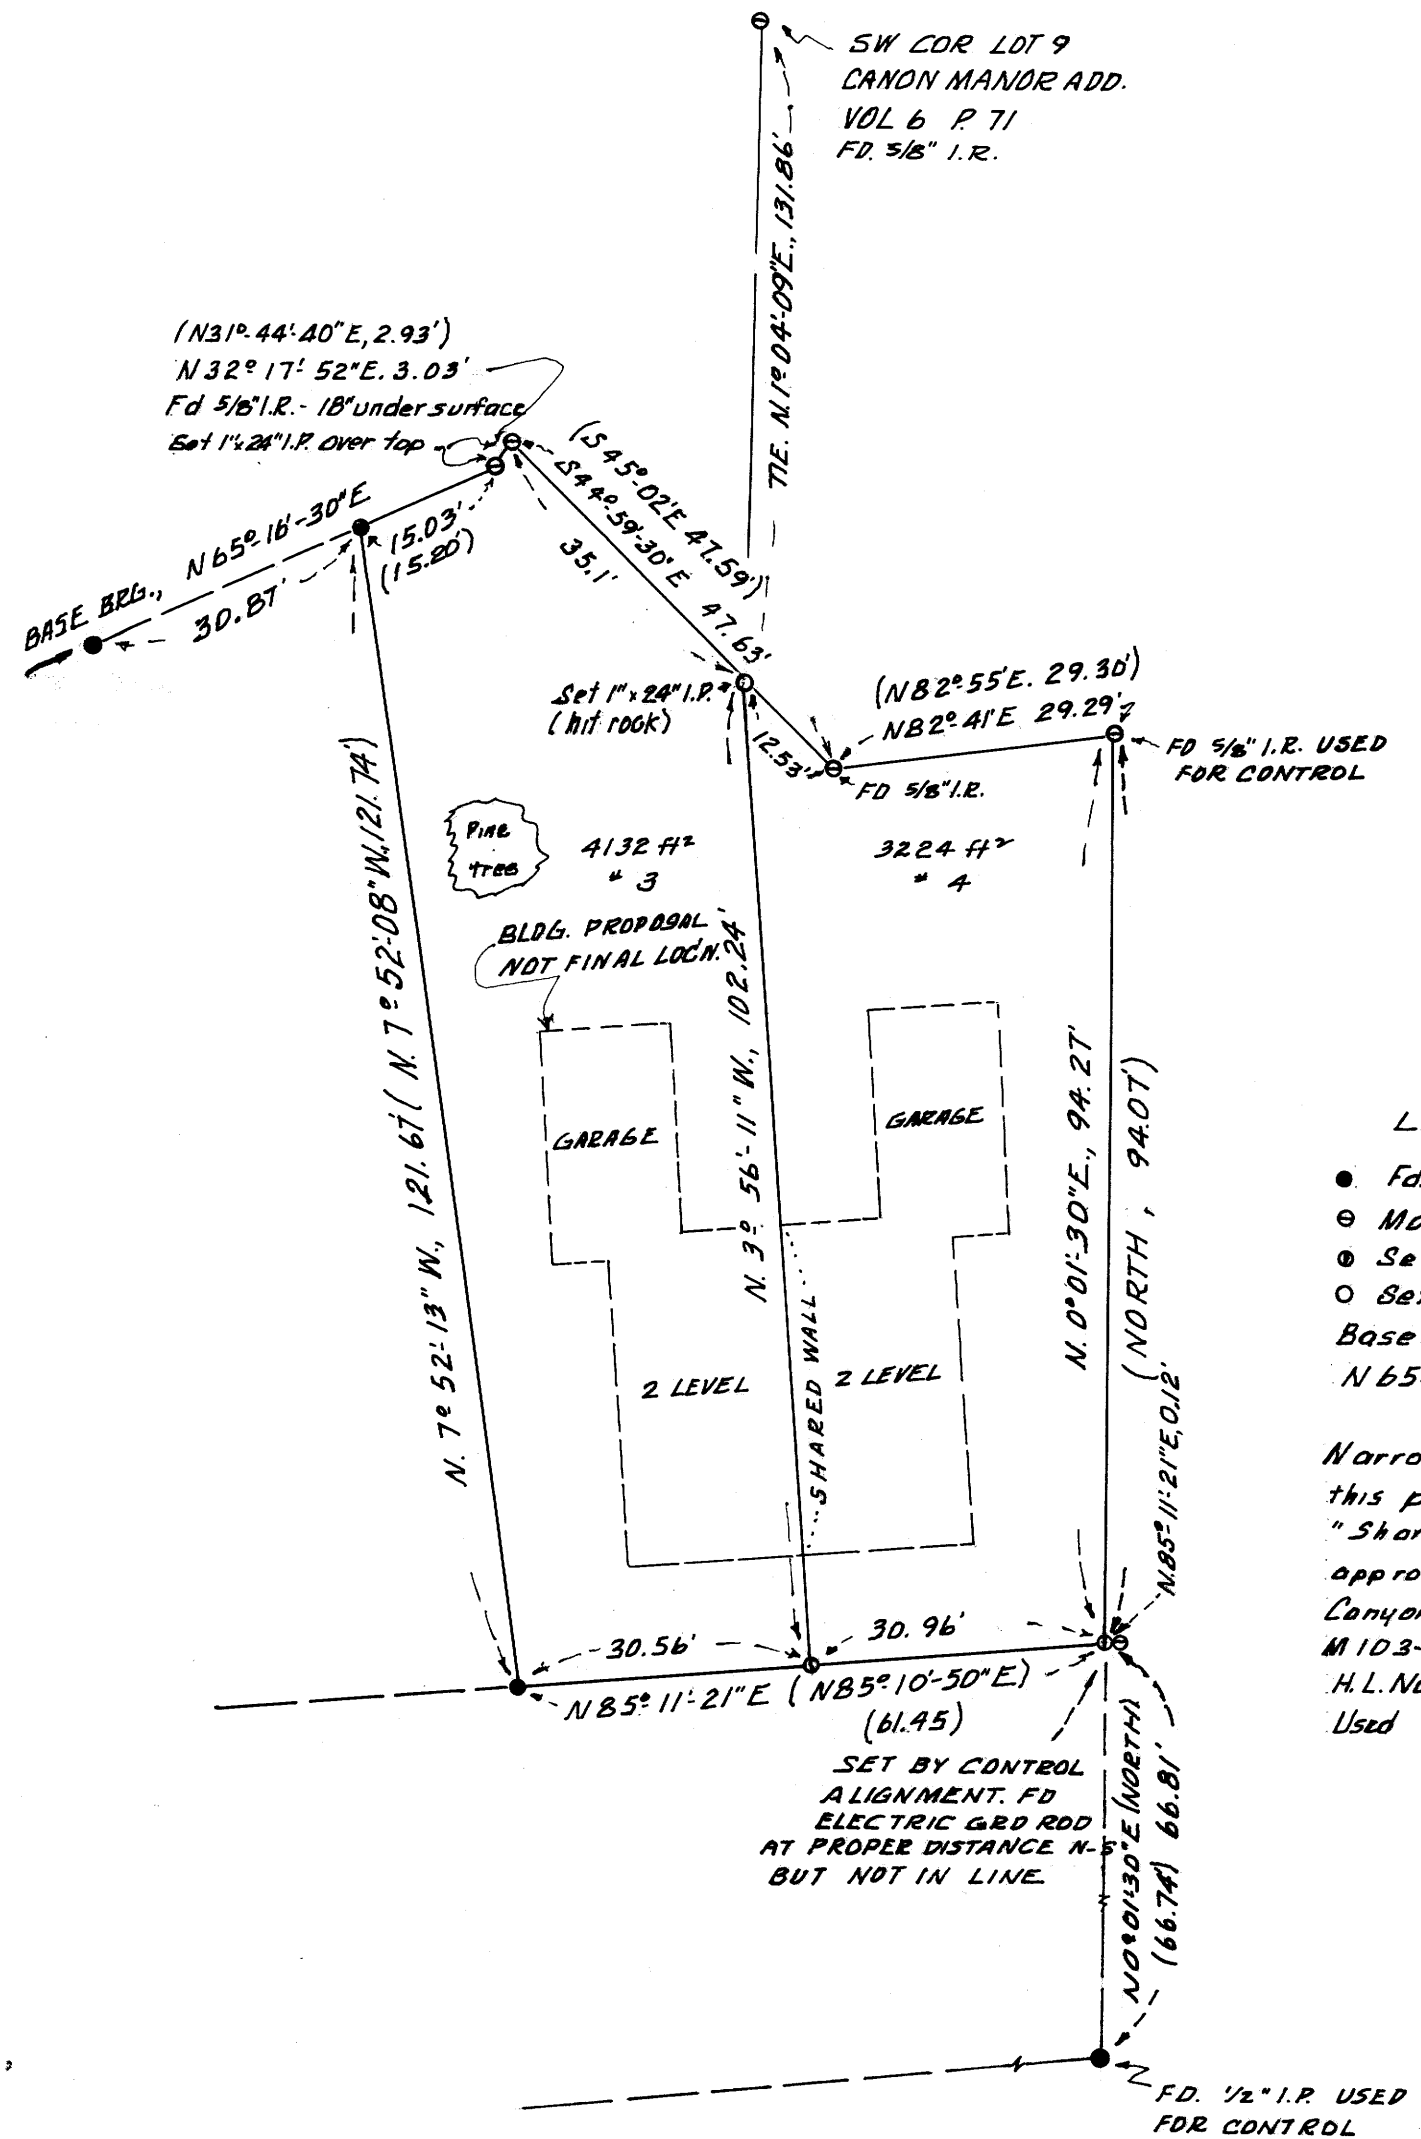 SW COR LOT 9
CANON MANOR ADD.
VOL 6 P. 71
FD. 5/8" I.R.
TIE. N.1º04'-09"E., 131.86'
(N31º-44'-40"E, 2.93')
N 32º 17' 52"E. 3.03'
Fd 5/8" I.R. - 18" under surface
Set 1"x24" I.P. over top
(S45º-02'E 47.59')
S44º-59'-30"E 47.63'
35.1'
BASE BRG., N65º-16'-30"E
15.03'
(15.20')
30.87'
Set 1"x24" I.P.
(hit rock)
12.53'
(N82º-55'E. 29.30')
N82º-41'E 29.29'
FD 5/8" I.R. USED
FOR CONTROL
FD 5/8" I.R.
Pine
tree
4132 ft²
# 3
3224 ft²
# 4
BLDG. PROPOSAL
NOT FINAL LOC'N.
N. 7º 52'-13" W., 121.67' (N. 7º 52'-08" W., 121.74')
N. 3º 56'-11" W., 102.24'
N. 0º01'-30"E., 94.27'
(NORTH, 94.07')
GARAGE
GARAGE
2 LEVEL
2 LEVEL
SHARED WALL
N.85º-11'-21"E, 0.12'
30.56'
30.96'
N85º-11'-21"E (N85º-10'-50"E)
(61.45)
SET BY CONTROL
ALIGNMENT. FD
ELECTRIC GRD ROD
AT PROPER DISTANCE N-S
BUT NOT IN LINE.
N0º01'-30"E (NORTH)
(66.74) 66.81'
FD. 1/2" I.P. USED
FOR CONTROL
L
Fd.
Mo
Se
Set
Base
N 65-
Narro
this p
"Shar
appro
Canyon
M 103-
H.L. No
Used